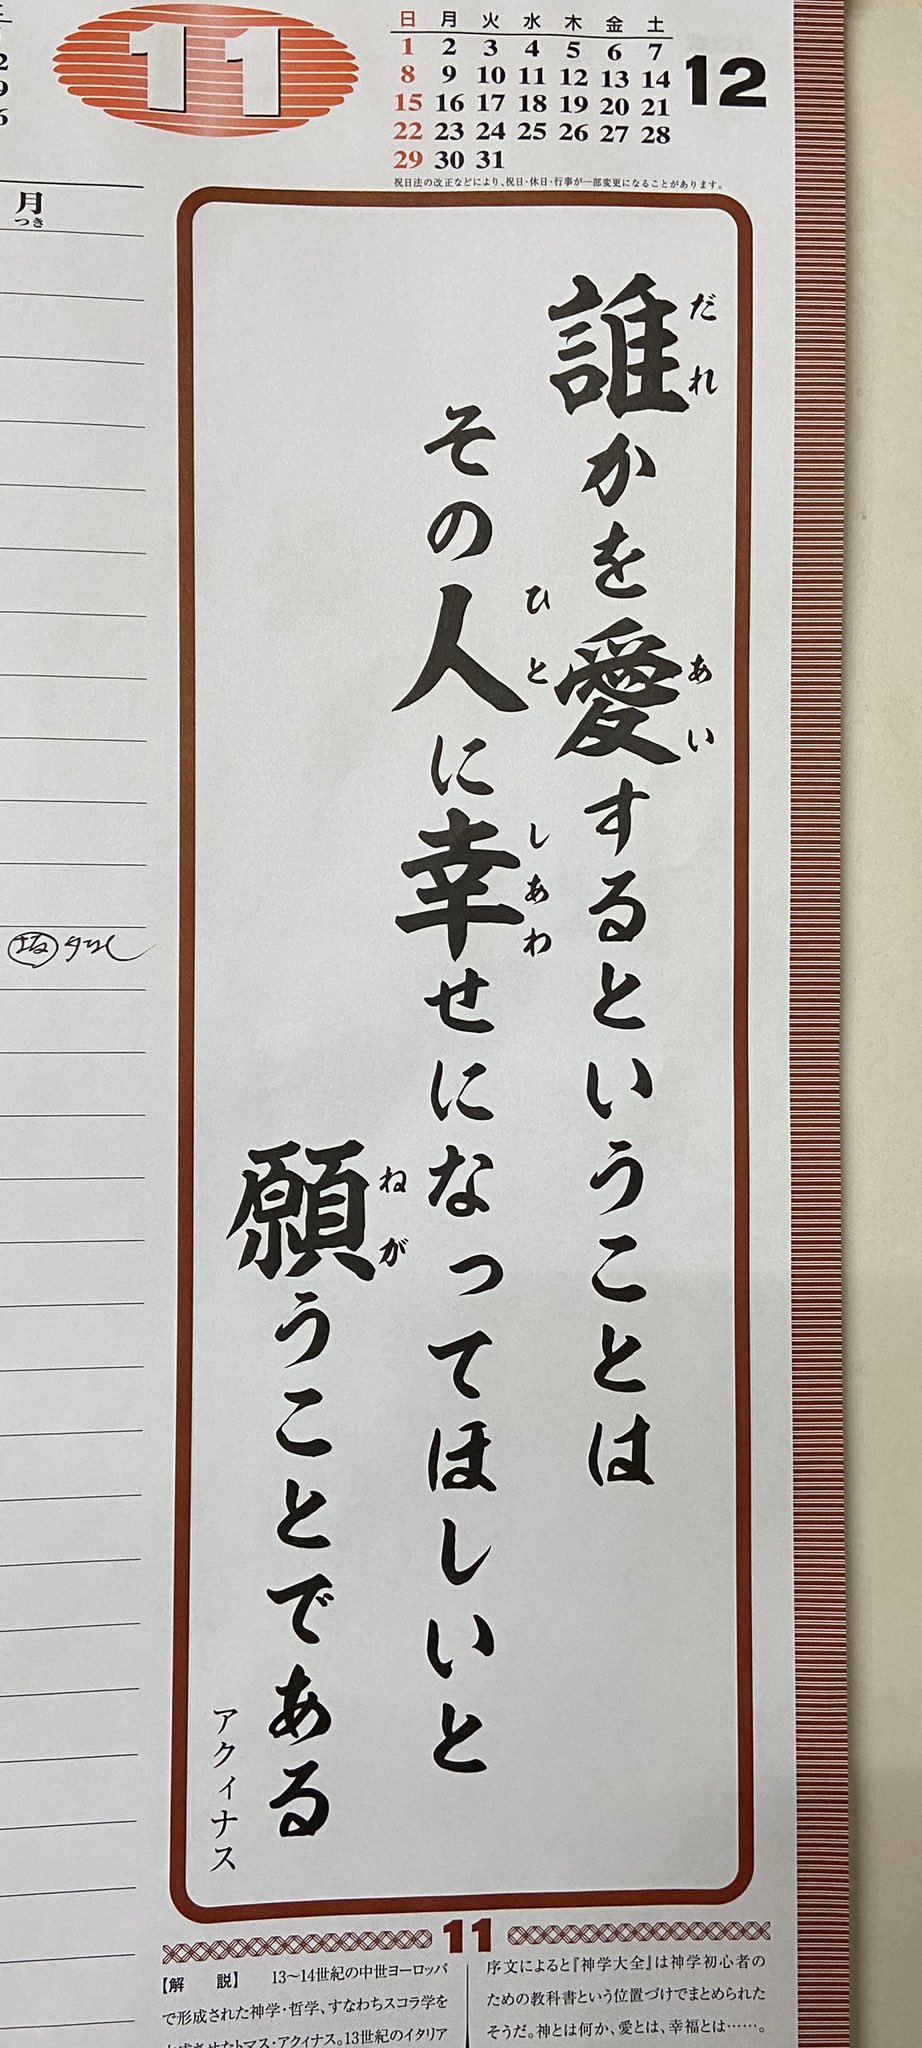 11
日 月 火 水 木 金 土
1 2 3 4 5 6 7
8 9 10 11 12 13 14
15 16 17 18 19 20 21
22 23 24 25 26 27 28
29 30 31
12
祝日法の改正などにより、祝日・休日・行事が一部変更になることがあります。
月
つき
誰かを愛するということは
だれ
あい
その人に幸せになってほしいと
ひと
しあわ
願うことである
ねが
アクィナス
坂
11
【解 説】 13〜14世紀の中世ヨーロッパ
で形成された神学・哲学、すなわちスコラ学を
トマス・アクィナス。13世紀のイタリア
序文によると『神学大全』は神学初心者の
ための教科書という位置づけでまとめられた
そうだ。神とは何か、愛とは、幸福とは……。